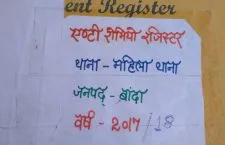 ent Register
एण्टी रोमियो रजिस्टर
थाना - महिला थाना
जनपद - बांदा
वर्ष - 2017/18